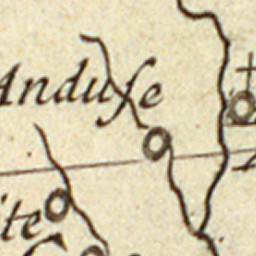 Anduſe
ite